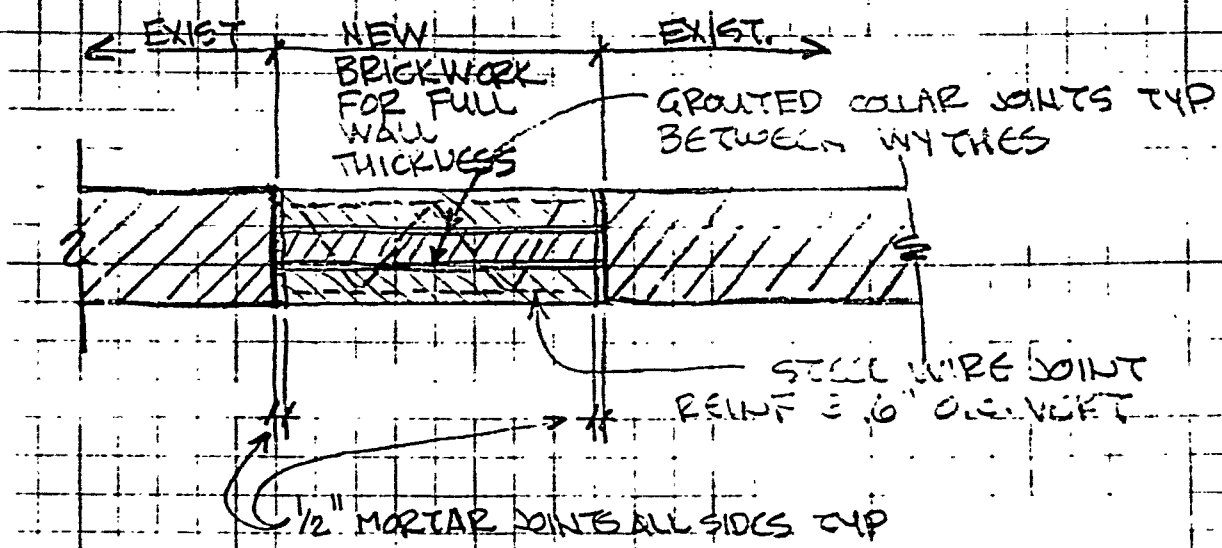 EXIST
NEW
EXIST.
BRICKWORK
FOR FULL
WALL
THICKNESS
GROUTED COLLAR JOINTS TYP
BETWEEN WYTHES
STEEL WIRE JOINT
REINF O.C. VERT
1/2" MORTAR JOINTS ALL SIDES TYP